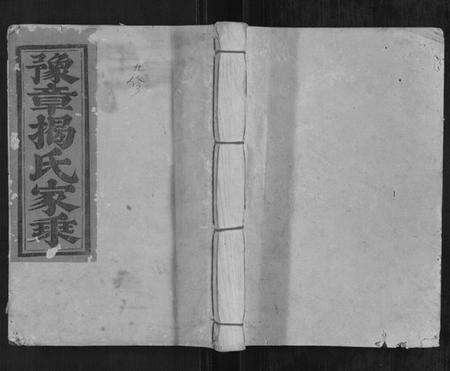 豫章揭氏家乘
九修